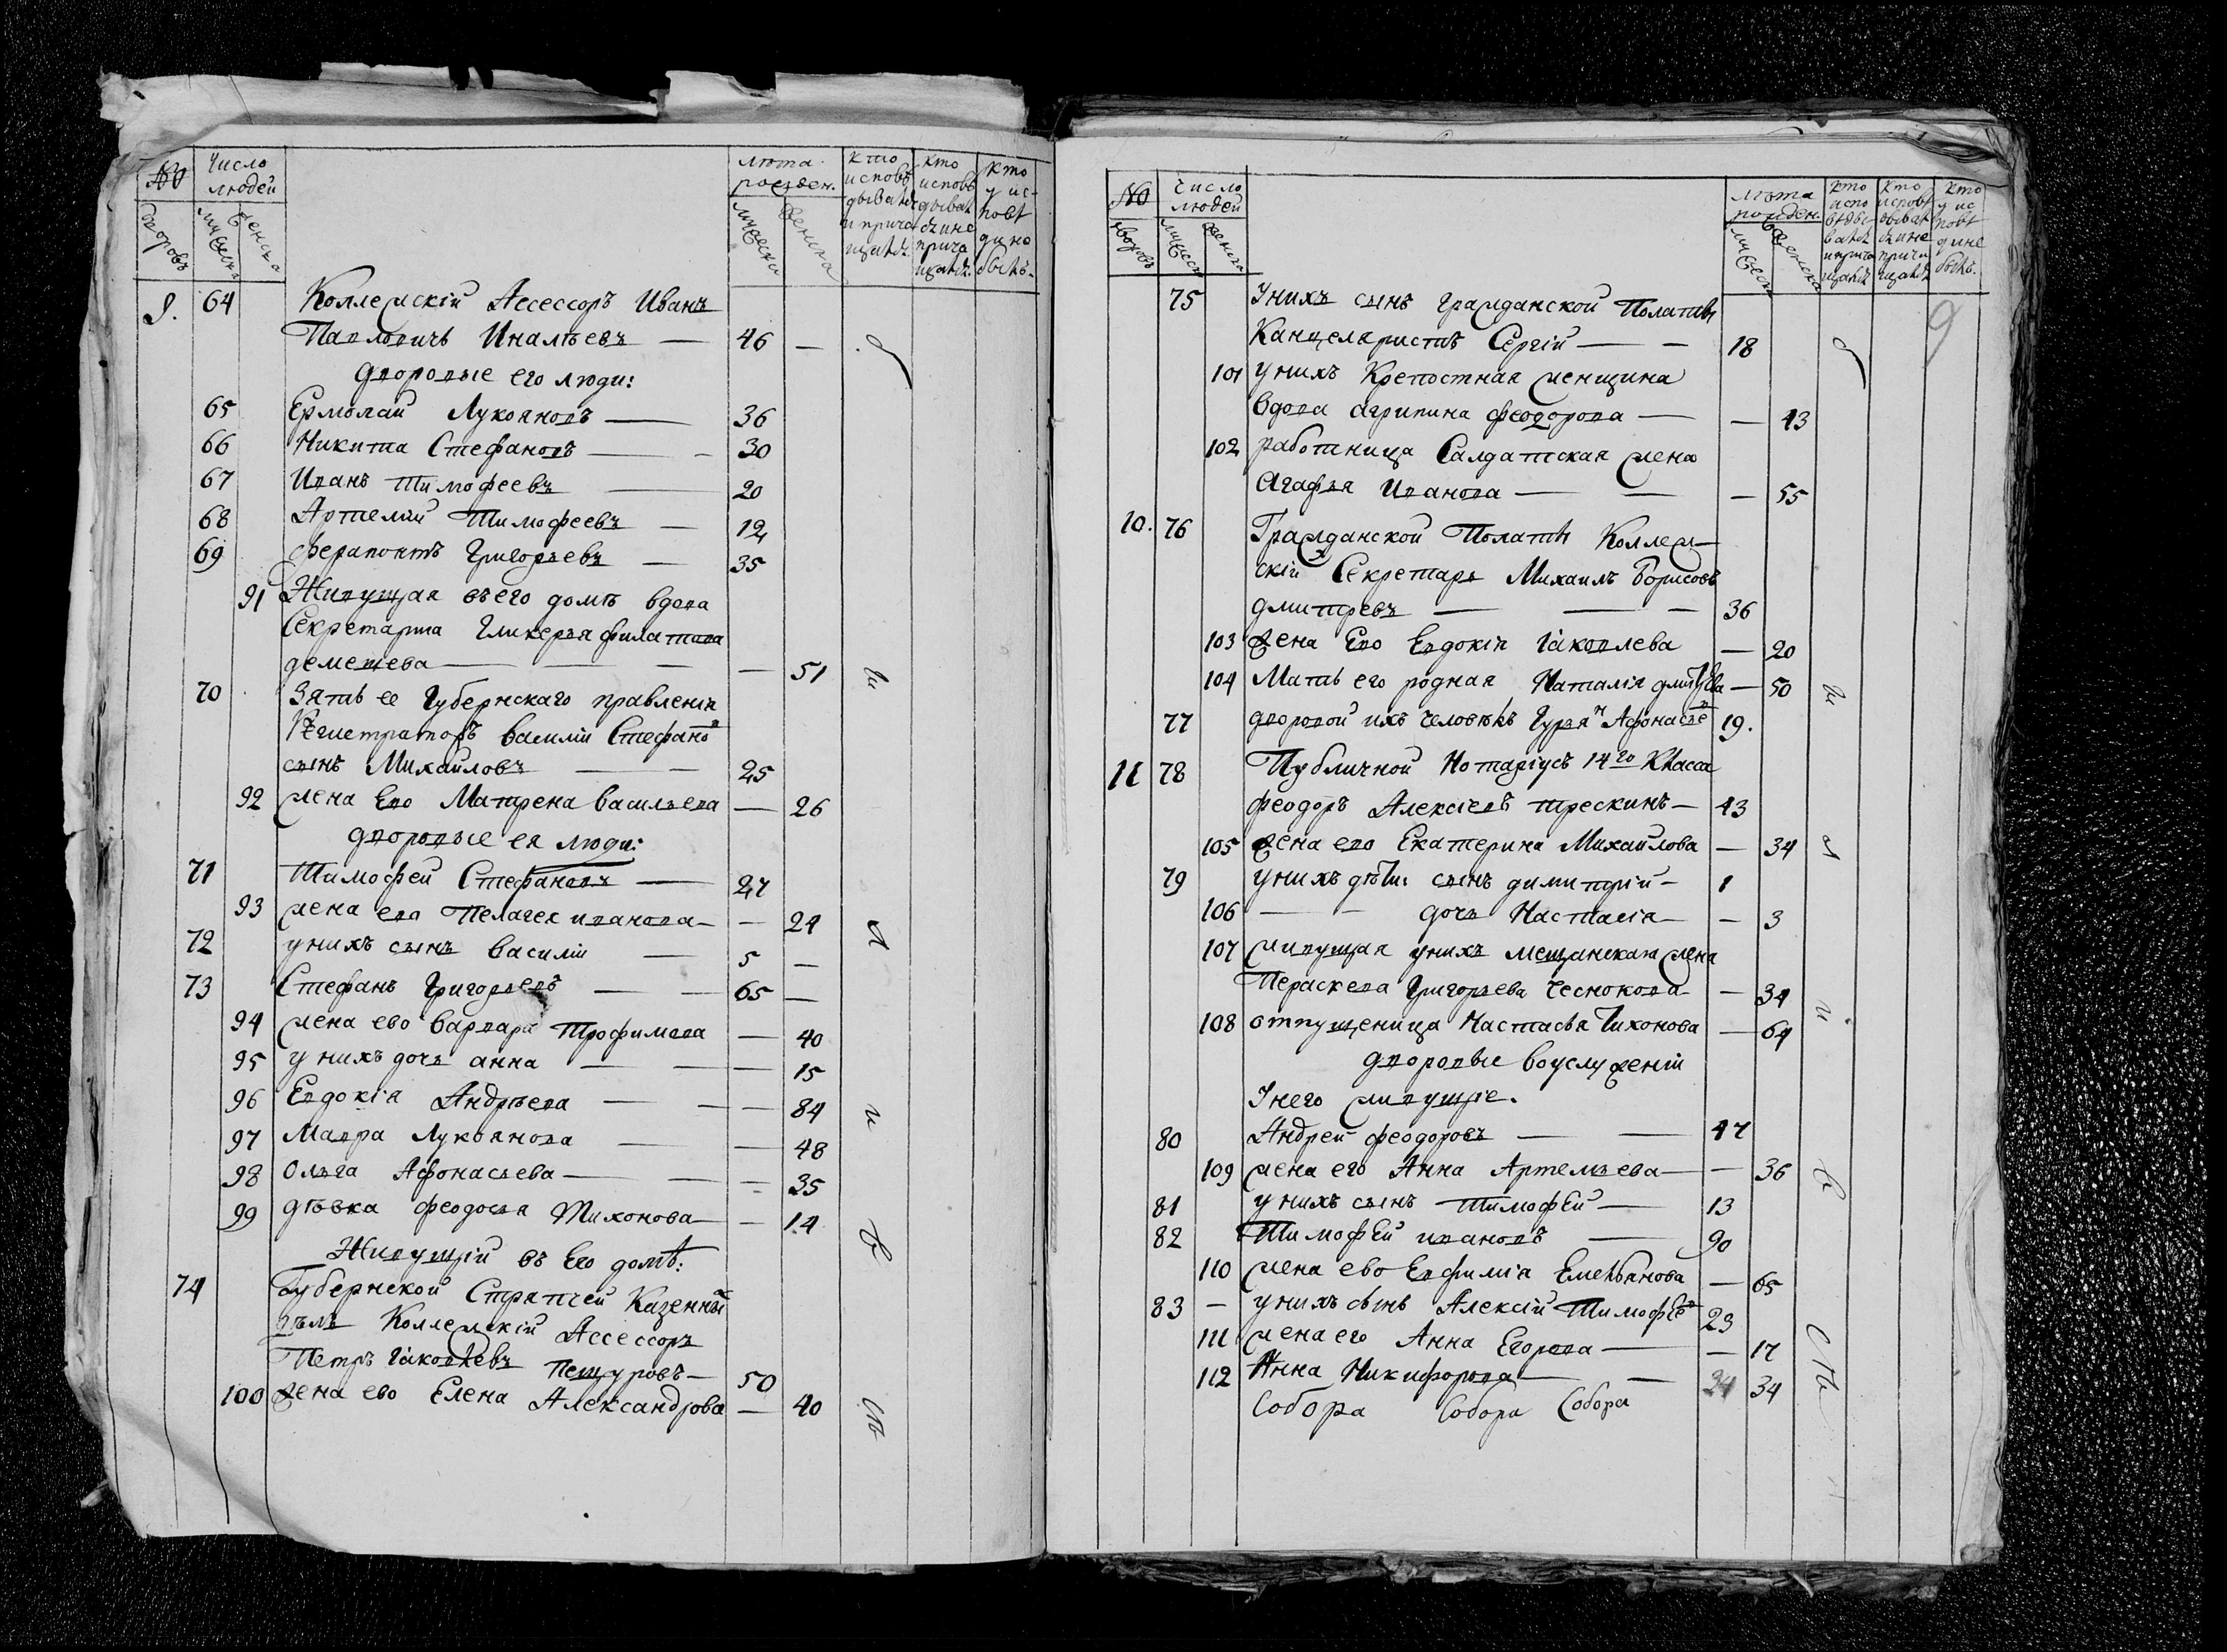 № Число людей лѣта рожден. кто исповѣдывался и причащался кто исповѣдывался а не причащался кто у исповѣди не былъ
дворовъ мужеска женска мужеска женска
9. 64 Коллежскій Ассессоръ Иванъ
Павловичь Иналѣевъ — 46 —
дворовые его люди:
65 Ермолай Лукояновъ — 36
66 Никита Стефановъ — 30
67 Иванъ Тимофеевъ 20
68 Артемій Тимофеевъ — 12
69 Ферапонтъ Григорьевъ — 35
91 Живущая въ его домѣ вдова
Секретарша Гликерья Филатова
— — — 51
70 Зять ее Губернскаго правленія
Регистраторъ Василій Стефано
сынъ Михайловъ — — 25
92 жена Ево Матрена Васильева — 26
дворовые ея люди:
71 Тимофей Стефановъ — 27
93 жена ево Пелагея иванова — — 24
72 у нихъ сынъ Василій — 5 —
73 Стефанъ Григорьевъ — — 65 —
94 жена ево Варвара Трофимова — 40
95 у нихъ дочь анна — — — 15
96 Евдокія Андрѣева — — — 84
97 Мавра Лукоянова — — 48
98 Ольга Афонасьева — — — 35
99 дѣвка Феодосья Тихонова — — 14
Живущій въ Ево домѣ:
74 Губернской Стряпчей Казенны
дѣлъ Коллежскій Ассессоръ
Петръ Іаковлевъ Пещуровъ — 50
100 жена ево Елена Александрова — 40
№ Число людей лѣта рожден. кто исповѣдывался и причащался кто исповѣдывался а не причащался кто у исповѣди не былъ
дворовъ мужеск женска мужеск женска
9
75 У нихъ сынъ Гражданской Полаты
Канцеляристъ Сергій — — 18
101 у нихъ Крепостная женщина
вдова агрипина феодорова — — 43
102 работница Салдатская жена
Агафья Иванова — — — 55
10. 76 Гражданской Полаты Коллеж
скій Секретарь Михаилъ Борисовъ
дмитревъ — — — 36
103 жена Ево Евдокія Іаковлева — 20
104 Мать его родная Наталія — 50
77 дворовой ихъ человѣкъ Гурья Афонасье 19.
11 78 Публичной Нотаріусъ 14го Класса
феодоръ Алексіевъ трескинъ — 43
105 жена ево Екатерина Михайлова — 34
79 у нихъ дѣти: сынъ димитрій — 1
106 — — дочь Настасіа — — 3
107 живущая у нихъ мещанская жена
Пераскева Григорьева Чеснокова — — 34
108 отпущеница Настасья Тихонова — 64
дворовые воуслуженіи
У него живущіе.
80 Андрей феодоровъ — — 47
109 жена его Анна Артемьева — — 36
81 у нихъ сынъ Тимофей — 13
82 Тимофей ивановъ — 90
110 жена ево Евфиміа Емельянова — 65
83 — у нихъ сынъ Алексій Тимофѣе 23
111 жена его Анна Егорова — — 17
112 Анна Никифорова — — 34 34
Собора Собора Собора